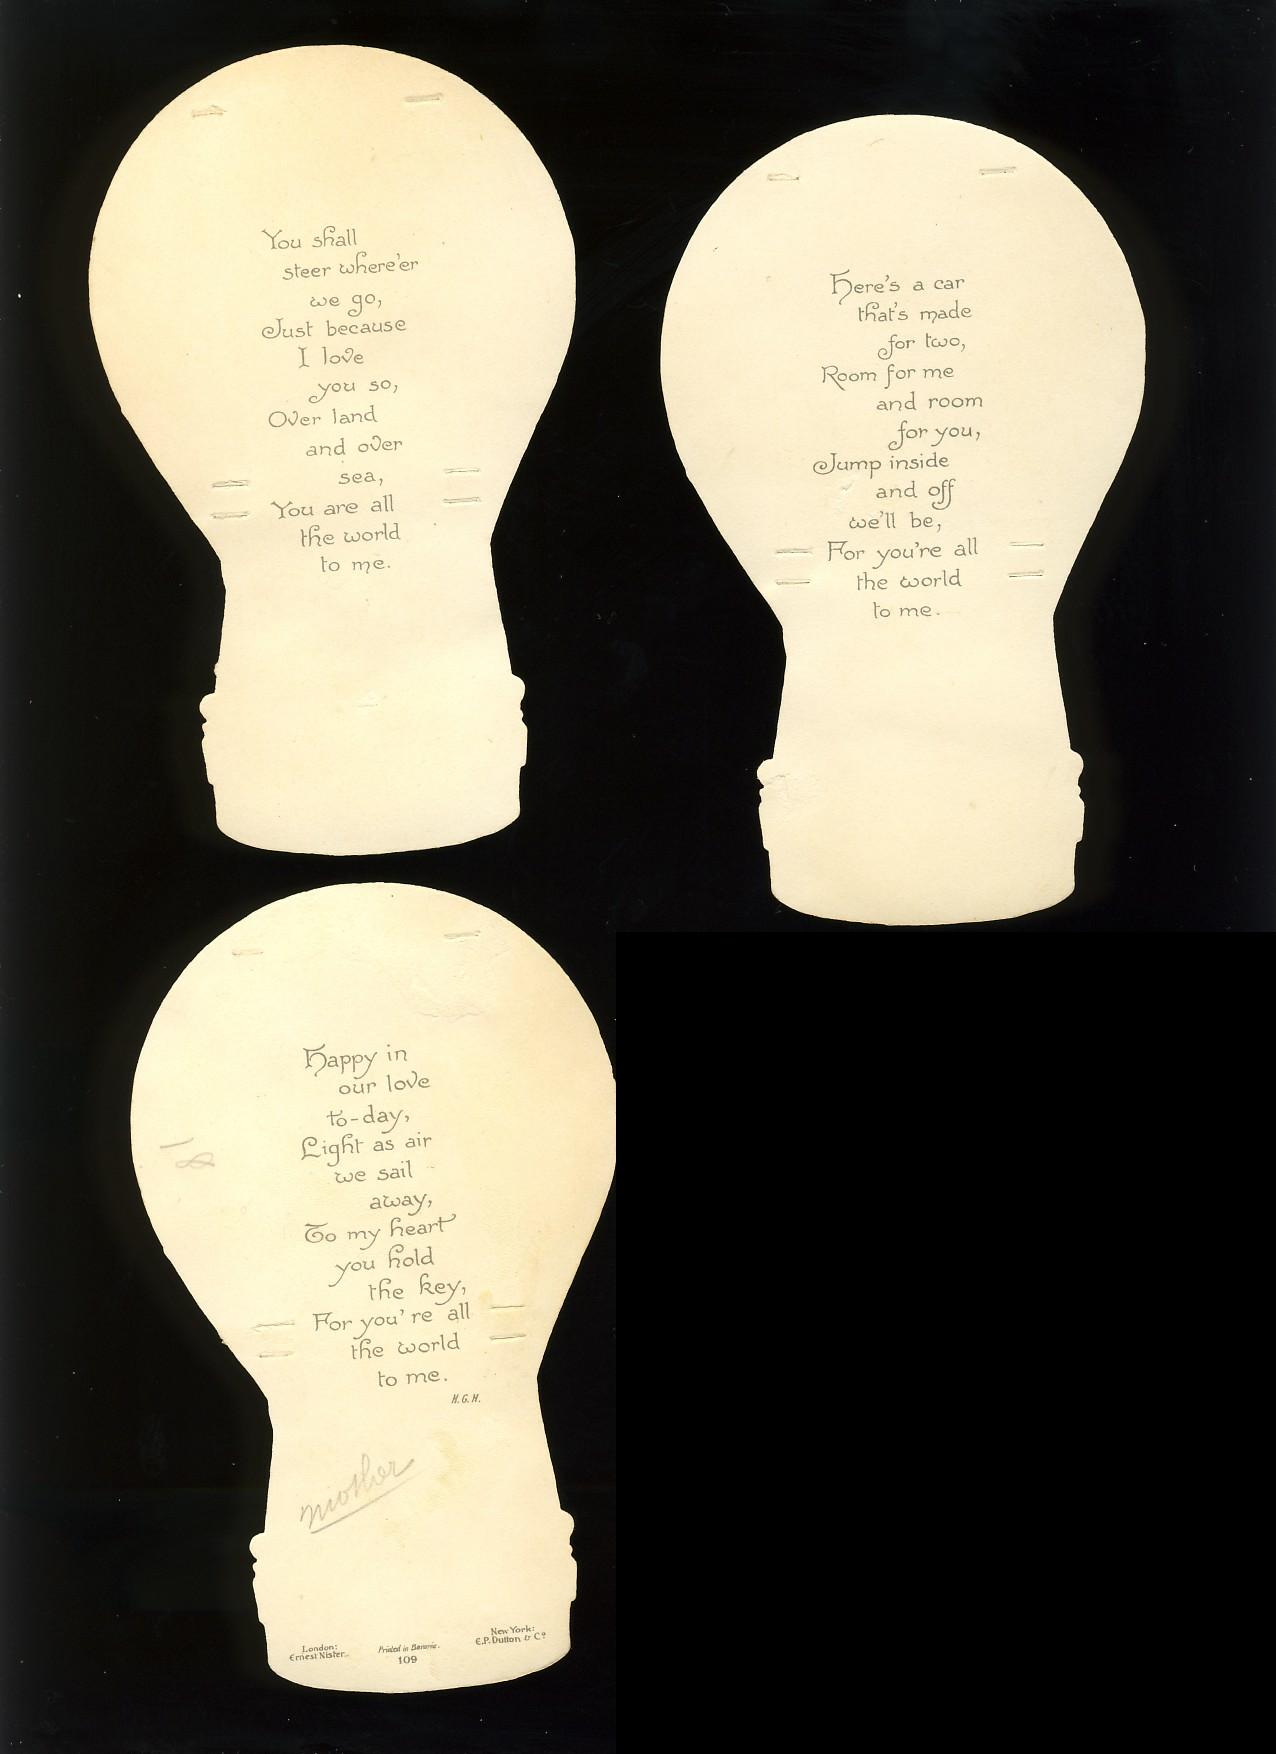 You shall
steer where'er
we go,
Just because
I love
you so,
Over land
and over
sea,
You are all
the world
to me.
Here's a car
that's made
for two,
Room for me
and room
for you,
Jump inside
and off
we'll be,
For you're all
the world
to me.
Happy in
our love
to-day,
Light as air
we sail
away,
To my heart
you hold
the key,
For you're all
the world
to me.
H.G.H.
mother
London:
Ernest Nister.
Printed in Bavaria.
109
New York:
E.P. Dutton & Co